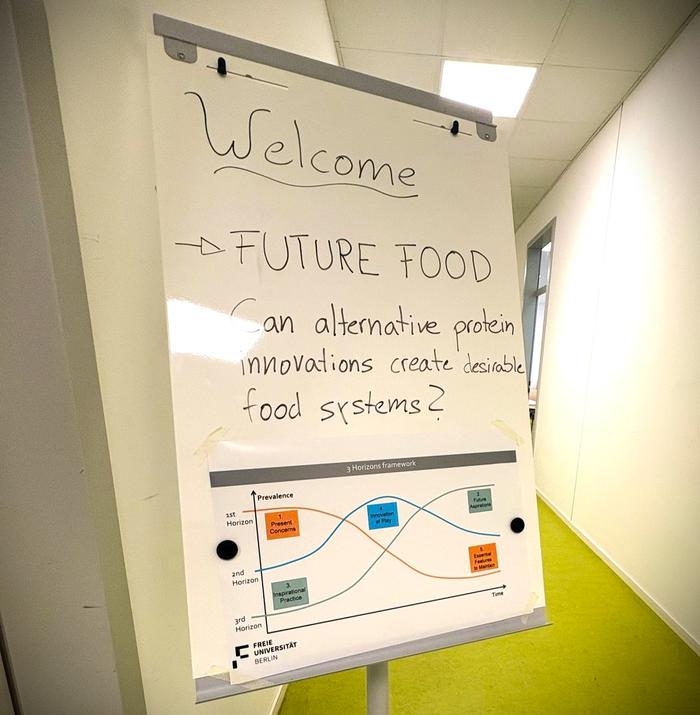 Welcome
FUTURE FOOD
Can alternative protein
innovations create desirable
food systems?
3 Horizons framework
Prevalence
1st
Horizon
2nd
Horizon
3rd
Horizon
1.
Present
Concerns
4.
Innovation
at Play
2.
Future
Aspirations
3.
Inspirational
Practice
5.
Essential
Features
to Maintain
Time
FREIE
UNIVERSITÄT
BERLIN